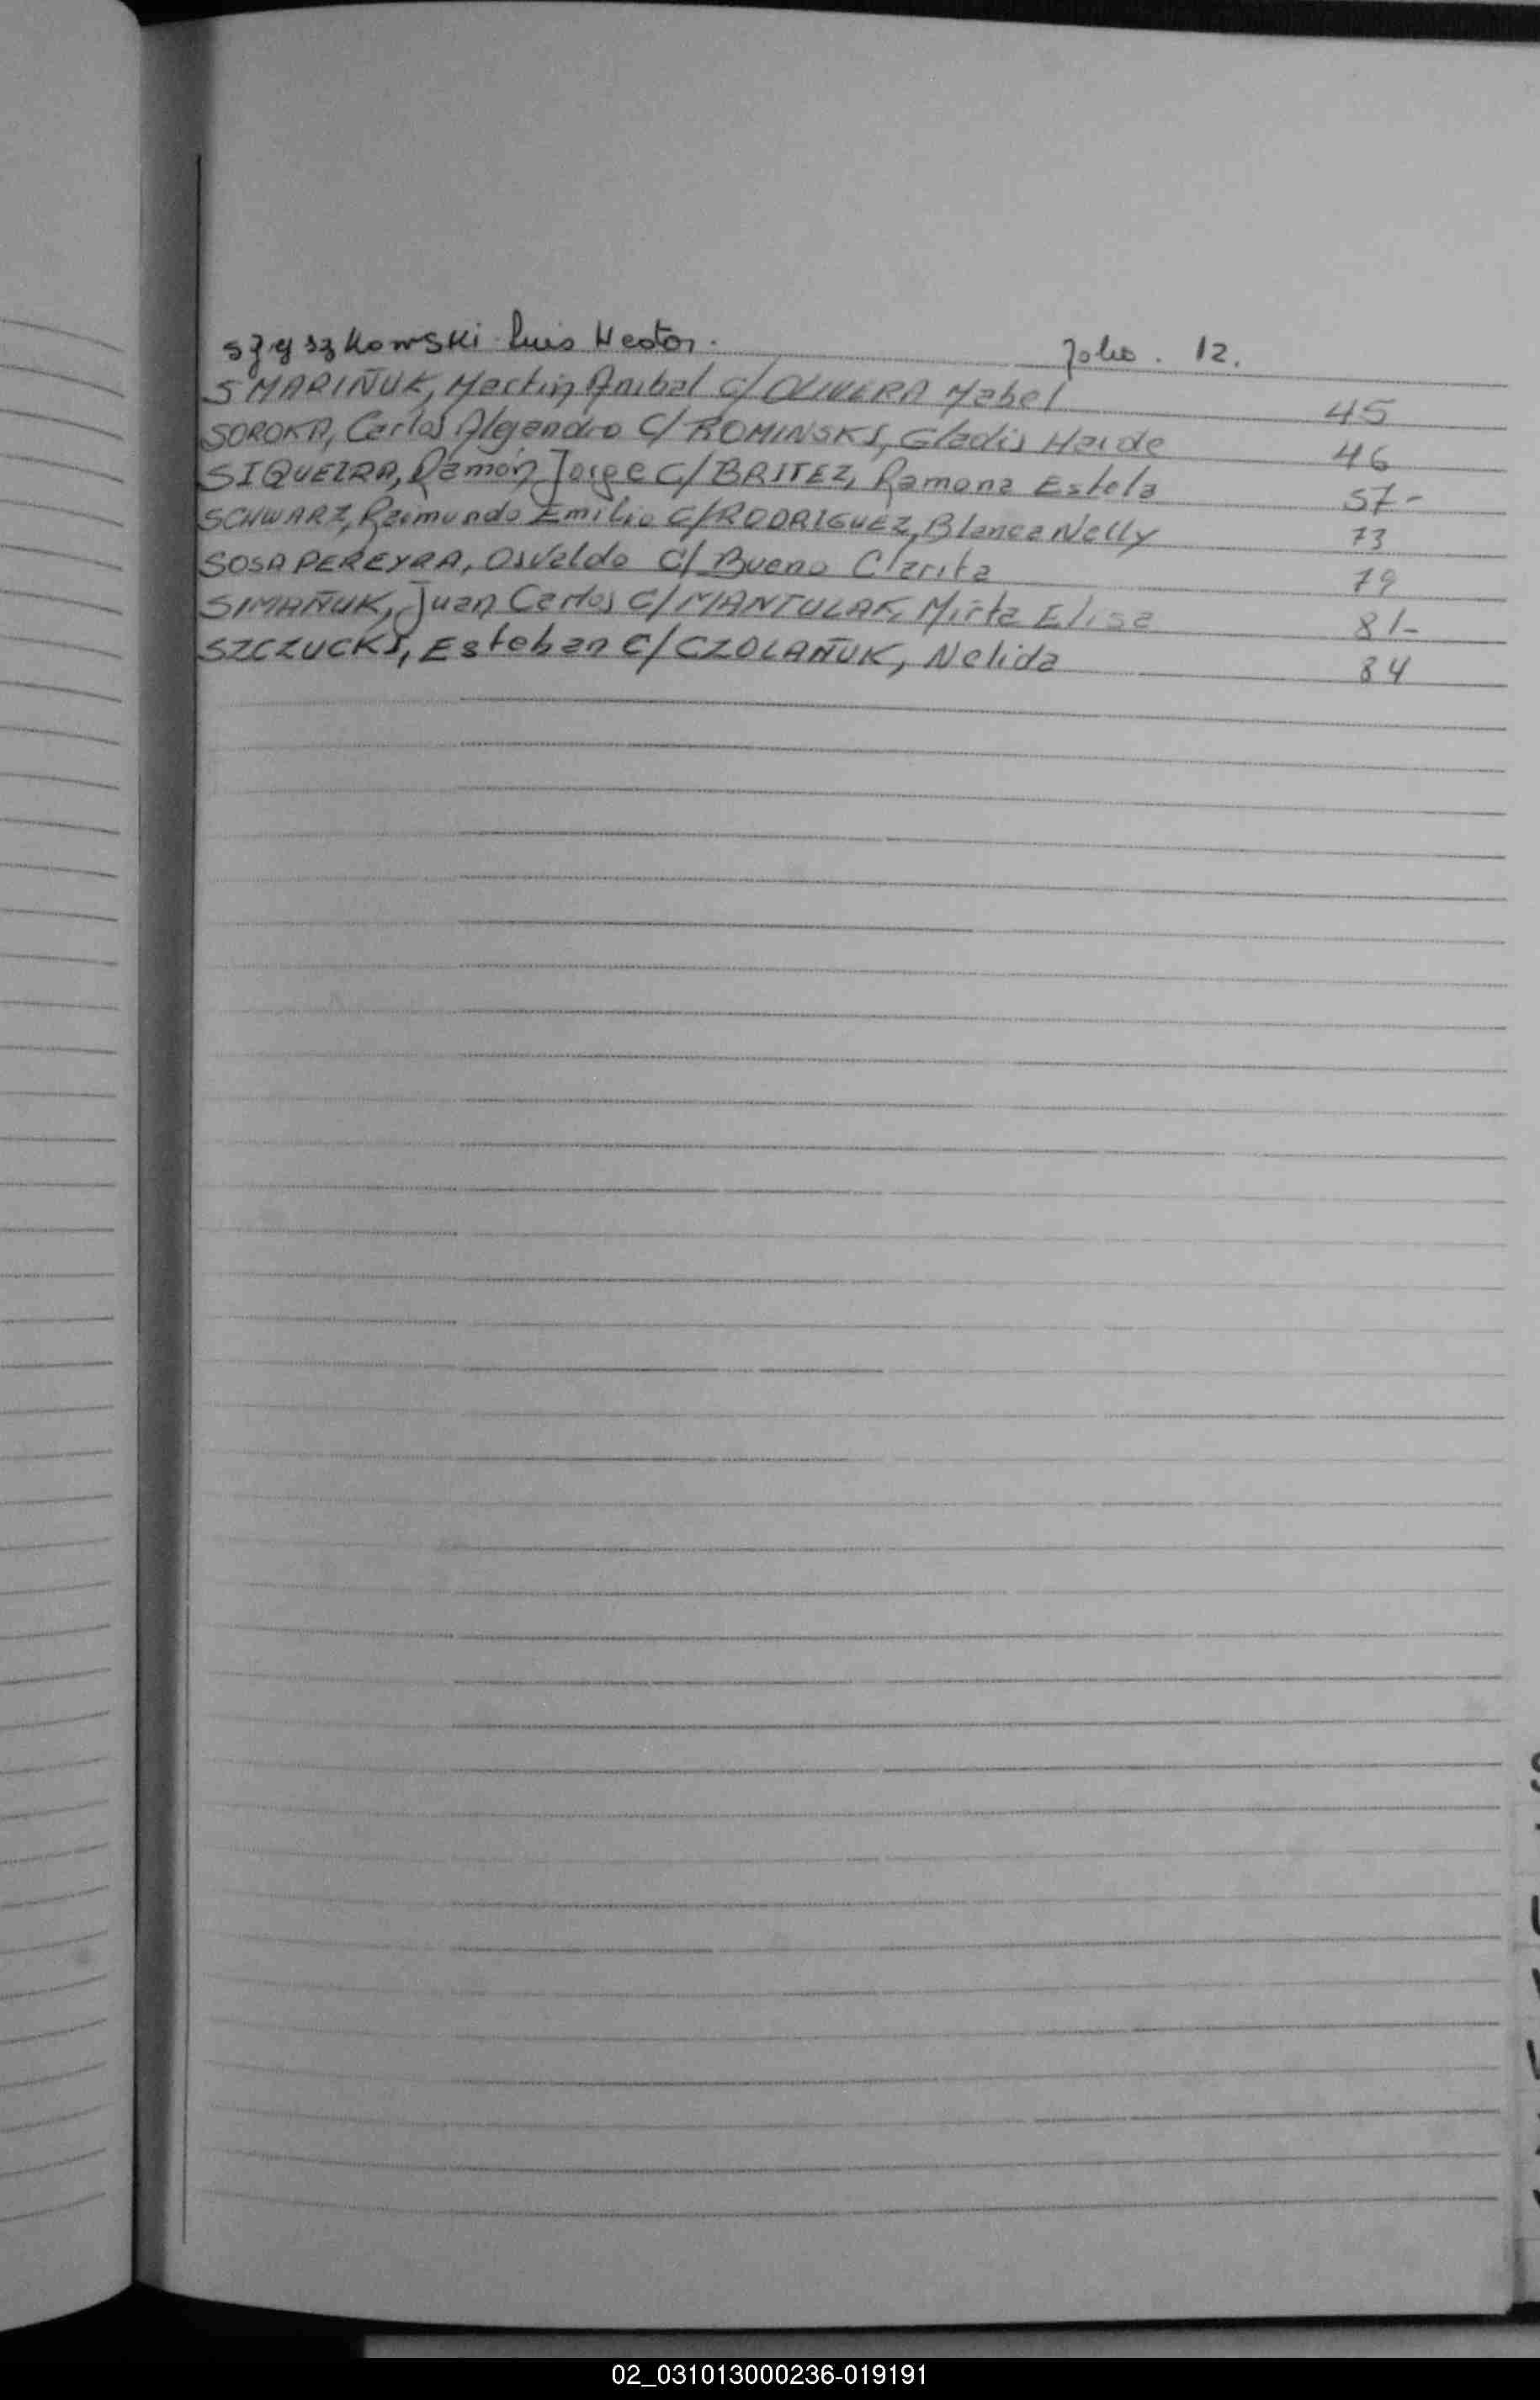 Szyszkowski Luis Hector. Folio. 12.
SMARIÑUK, Martin Anibal C/ OLIVERA Mabel 45
SOROKA, Carlos Alejandro C/ ROMINSKI, Gladis Haide 46
SIQUEIRA, Ramón Jorge C/ BRITEZ, Ramona Estela 57-
SCHWARZ, Raimundo Emilio C/ RODRIGUEZ, Blanca Nelly 73
SOSA PEREYRA, Osvaldo C/ Bueno Clarita 79
SIMAÑUK, Juan Carlos C/ MANTULAK, Mirta Elisa 81-
SZCZUCKI, Esteban C/ CZOLAÑUK, Nelida 84
S
U
V
02_031013000236-019191